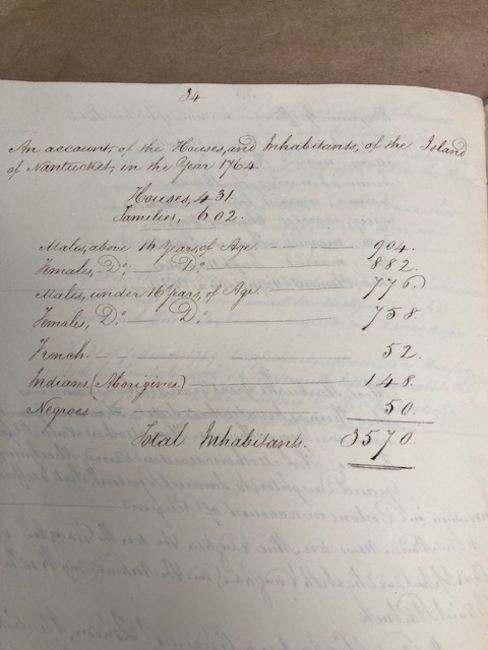 34
An account, of the Houses, and Inhabitants, of the Island
of Nantucket, in the Year 1764
Houses, 431.
Families, 602.
Males, above 16 years, of Age. 904.
Females, Do; Do; 882.
Males, under 16 years, of Age. 776.
Females, Do; Do; 758.
French. 52.
Indians (Aborigines) 148.
Negroes 50.
Total Inhabitants. 3570.